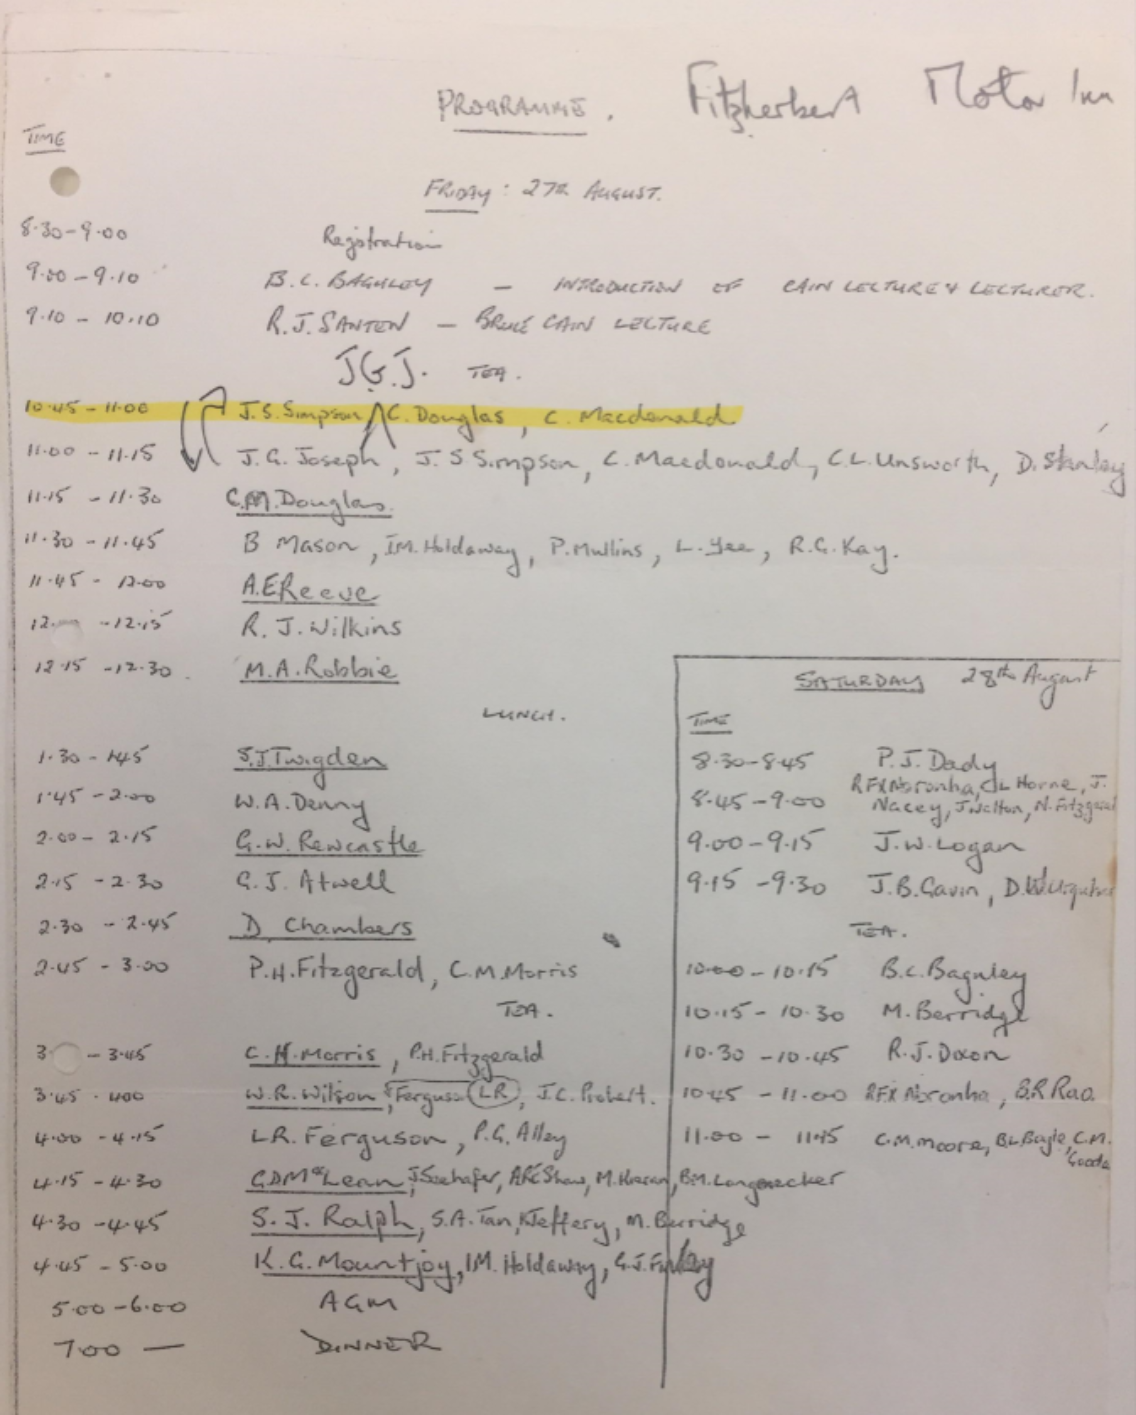 PROGRAMME. Fitzherbert Motor Inn
TIME
FRIDAY: 27th AUGUST.
8.30-9.00 Registration
9.00-9.10 B.C. BAGULEY - INTRODUCTION OF CAIN LECTURE & LECTURER.
9.10 - 10.10 R.J. SANTEN - BRUCE CAIN LECTURE
J.G.J. TEA.
10.45-11.00 J.S. Simpson C. Douglas, C. Macdonald
11.00 - 11.15 J.G. Joseph, J.S Simpson, C. Macdonald, C.L. Unsworth, D. Stanley
11.15 - 11.30 C.M. Douglas.
11.30 - 11.45 B Mason, I.M. Holdaway, P. Mullins, L. Yee, R.G. Kay.
11.45 - 12.00 A.E Reeve
12. -12.15 R. J. Wilkins
12.15 -12.30. M.A. Robbie
LUNCH.
1.30 - 1.45 S.J. Twigden
1.45 - 2.00 W.A. Denny
2.00 - 2.15 G.W. Rewcastle
2.15 - 2.30 G.J. Atwell
2.30 - 2.45 D Chambers
2.45 - 3.00 P.H. Fitzgerald, C.M. Morris
TEA.
3 - 3.45 C. M. Morris, P.H. Fitzgerald
3.45 - 4.00 W.R. Wilson, Ferguson LR, J.C. Probert.
4.00 - 4.15 L.R. Ferguson, P.G. Alley
4.15 - 4.30 G.D Mc Lean, J Seehafer, M. B.M. Longnecker
4.30 - 4.45 S. J. Ralph, S.A. Tan, K Jeffery, M. Berridge
4.45 - 5.00 K. G. Mountjoy, I.M. Holdaway, G.J. Finlay
5.00-6.00 AGM
7.00 — DINNER
SATURDAY 28th August
TIME
8.30-8.45 P.J. Dady
8.45-9.00 RFX Noronha, CL Horne, J.
Nacey, J Walton, N. Fitzgerald
9.00-9.15 J.W. Logan
9.15 -9.30 J.B. Gavin, D.
TEA.
10.00 - 10.15 B.C. Baguley
10.15 - 10.30 M. Berridge
10.30 - 10.45 R.J. Dixon
10.45 - 11.00 RFX Noronha, B.R Rao.
11.00 - 11.15 C.M. Moore, C.M.